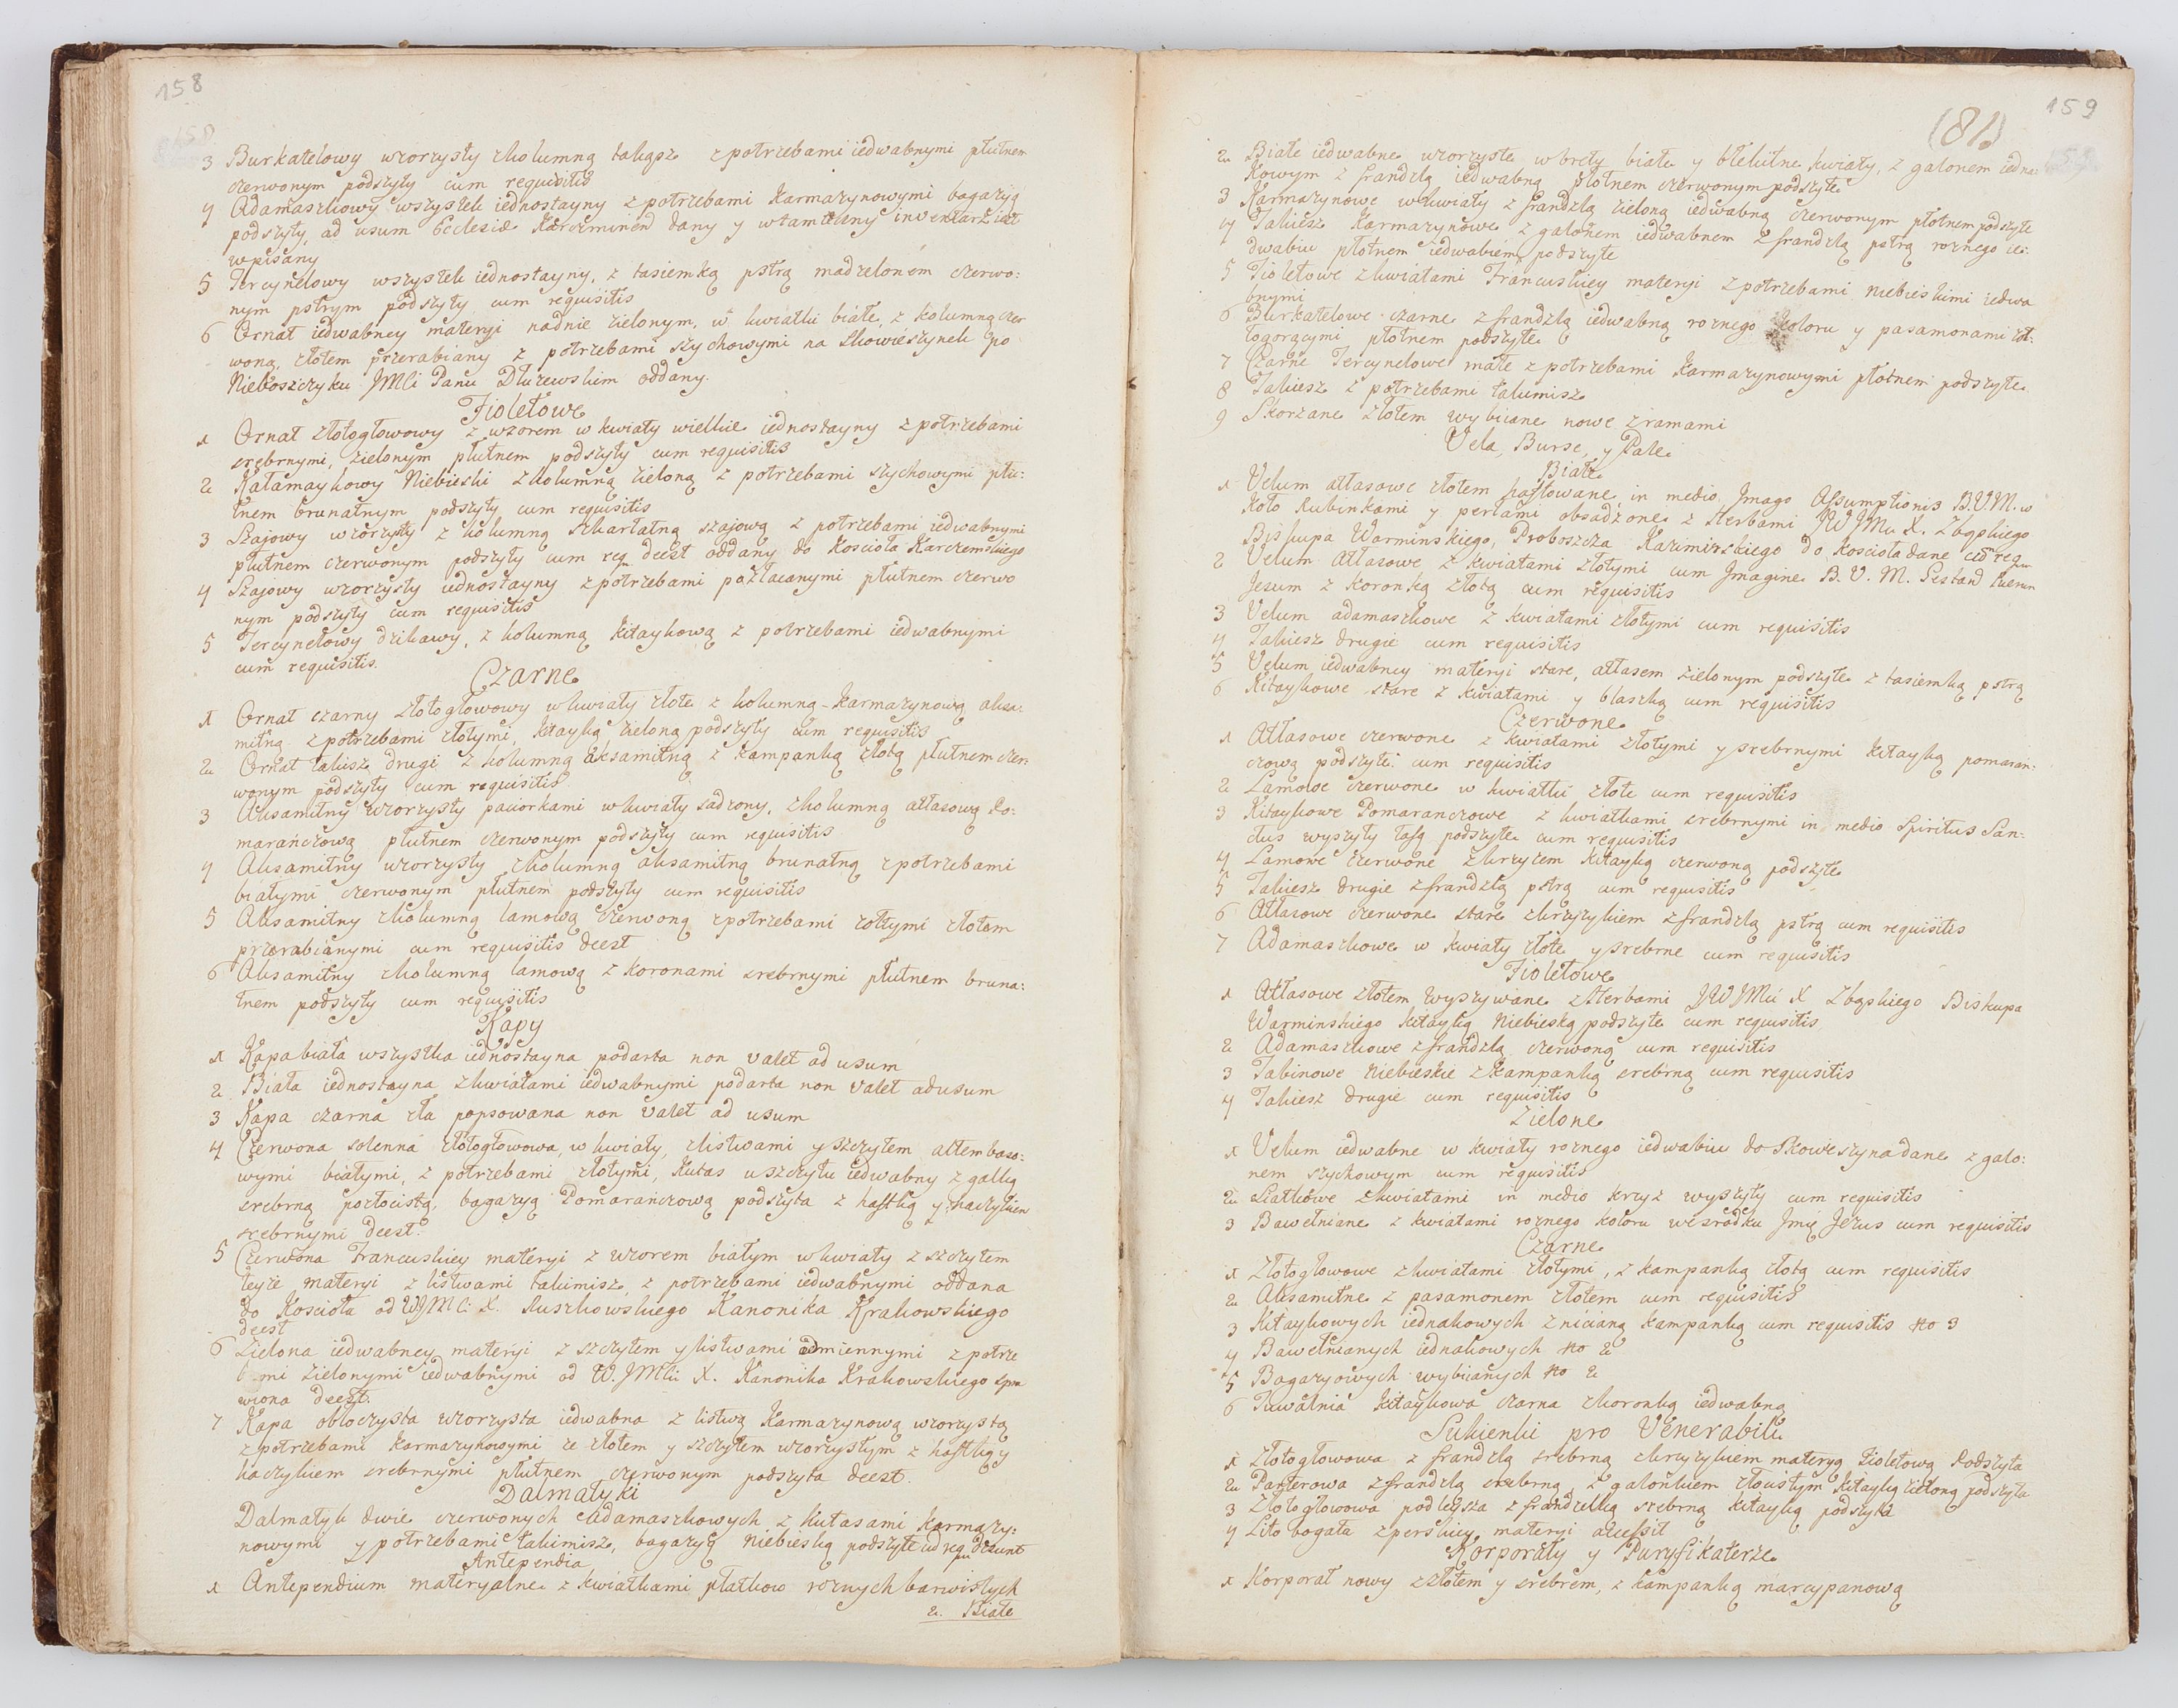 158
3 Burkatelowy wzorzysty z kolumną takąsz z potrzebami iedwabnymi płutnem
czerwonym podszyty cum requisitis
4 Adamaszkowy wszystek iednostayny z potrzebami Karmazynowymi bagazyą
podszyty, ad usum Ecclesiæ Karczminen dany y w tamteczny inwentarz iest
wpisany
5 Tercynelowy wszystek iednostayny, z tasiemką pstrą madzelonem czerwo:
nym pstrym podszyty cum requisitis
6 Ornat iedwabney materyi nadnie zielonym, w kwiatki białe, z kolumną czer
woną, złotem przerabiany z potrzebami szychowymi na Skowieszynek po
Nieboszczyku JMCi Panu Dłuzewskim oddany.
Fioletowe
1 Ornat złotogłowowy z wzorem w kwiaty wielkie iednostayny z potrzebami
srebrnymi, zielonym płutnem podszyty cum requisitis
2 Kałamaykowy Niebieski z kolumną zieloną z potrzebami szychowymi płu:
tnem brunatnym podszyty cum requisitis
3 Szajowy wzorzysty z kolumną szkarłatną szajową z potrzebami iedwabnymi
płutnem czerwonym podszyty cum req deest oddany do Koscioła Karczemskiego
4 Szajowy wzorzysty iednostayny z potrzebami pozłacanymi płutnem czerwo
nym podszyty cum requisitis
5 Tercynelowy dzikawy, z kolumną kitaykową z potrzebami iedwabnymi
cum requisitis.
Czarne
1 Ornat czarny złotogłowowy w kwiaty złote z kolumną Karmazynową aksa:
mitną z potrzebami złotymi, kitayką zieloną podszyty cum requisitis
2 Ornat takisz drugi z kolumną aksamitną z kampanką złotą płutnem czer
wonym podszyty cum requisitis
3 Aksamitny wzorzysty paciorkami w kwiaty sadzony, z kolumną atłasową Po:
marańczową płutnem czerwonym podszyty cum requisitis
4 Aksamitny wzorzysty z kolumną aksamitną brunatną z potrzebami
białymi czerwonym płutnem podszyty cum requisitis
5 Aksamitny z kolumną lamową czerwoną z potrzebami żołtymi złotem
przerabianymi cum requisitis deest
6 Aksamitny z kolumną lamową z koronami srebrnymi płutnem bruna:
tnem podszyty cum requisitis
Kapy
1 Kapa biała wszystka iednostayna podarta non valet ad usum
2 Biała iednostayna z kwiatami iedwabnymi podarta non valet ad usum
3 Kapa czarna zła popsowana non valet ad usum
4 Czerwona solenna złotogłowowa, w kwiaty, z listwami y szczytem altembaso:
wymi białymi, z potrzebami złotymi, Kutas u szczytu iedwabny z gałką
srebrną pozłocistą, bagazyą Pomarańczową podszyta z haftką y haczykiem
srebrnymi deest.
5 Czerwona Francuskiey materyi z wzorem białym w kwiaty z szczytem
teyże materyi z listwami takimisz, z potrzebami iedwabnymi oddana
do Koscioła od WJMCi X. Auszkowskiego Kanonika Krakowskiego
deest
6 Zielona iedwabney materyi z szczytem y listwami odmiennymi z potrze
mi zielonymi iedwabnymi od W. JMCi X. Kanonika Krakowskiego spra
wiona deest.
7 Kapa obłoczysta wzorzysta iedwabna z listwą Karmazynową wzorzystą
z potrzebami Karmazynowymi ze złotem y szczytem wzorzystym z haftką y
haczykiem srebrnymi płutnem czerwonym podszyta deest.
Dalmatyki
Dalmatyk dwie czerwonych Adamaszkowych z kutasami karmazy:
nowymi y potrzebami takimisz, bagazyą Niebieską podszyte cum req desunt
Antependia
1 Antependium materyalne z kwiatkami płatkow roznych barwistych
2. Białe
159
(81)
2 Białe iedwabne wzorzyste w brety białe y błekitne kwiaty, z galonem iedna:
kowym z frandzlą iedwabną płotnem czerwonym podszyte
3 Karmazynowe w kwiaty z frandzlą zieloną iedwabną czerwonym płotnem podszyte
4 Takiesz Karmazynowe z galonem iedwabnem z frandzlą pstrą roznego ie:
dwabiu płotnem iedwabiem podszyte
5 Fioletowe z kwiatami Francuskiey materyi z potrzebami niebieskimi iedwa
bnymi
6 Burkatelowe czarne z frandzlą iedwabną roznego koloru y pasamonami zół:
togorącymi płotnem podszyte
7 Czarne Tercynelowe małe z potrzebami Karmazynowymi płotnem podszyte
8 Takiesz z potrzebami takimisz
9 Skorzane złotem wybiiane nowe z ramami
Vela, Burse, y Pale
Białe
1 Velum atłasowe złotem haftowane in medio Imago Assumptionis B.V.M. w
koło Rubinkami y perłami obsadzone z Herbami JWJMCi X. Zbąskiego
Biskupa Warminskiego, Proboszcza Kazimirskiego do Koscioła dane cum req
2 Velum Atłasowe, z kwiatami złotymi cum Imagine B. V. M. Gestand Puerum
Jesum z koronką złotą cum requisitis
3 Velum adamaszkowe z kwiatami złotymi cum requisitis
4 Takiesz drugie cum requisitis
5 Velum iedwabney materyi stare, atłasem zielonym podszyte z tasiemką pstrą
6 Kitaykowe stare z kwiatami y blaszką cum requisitis
Czerwone
1 Atłasowe czerwone z kwiatami złotymi y srebrnymi kitayką pomaran:
czową podszyte cum requisitis
2 Lamowe czerwone w kwiatki złote cum requisitis
3 Kitaykowe Pomaranczowe z kwiatkami srebrnymi in medio Spiritus San:
ctus wyszyty tafą podszyte cum requisitis
4 Lamowe czerwone z krzyżem kitayką czerwoną podszyte
5 Takiesz drugie z frandzlą pstrą cum requisitis
6 Atłasowe czerwone stare z krzyżykiem z frandzlą pstrą cum requisitis
7 Adamaszkowe w kwiaty złote y srebrne cum requisitis
Fioletowe
1 Atłasowe złotem wyszywane z Herbami JWJMCi X Zbąskiego Biskupa
Warminskiego kitayką Niebieską podszyte cum requisitis
2 Adamaszkowe z frandzlą czerwoną cum requisitis
3 Tabinowe Niebieskie z kampanką srebrną cum requisitis
4 Takiesz drugie cum requisitis
Zielone
1 Velum iedwabne w kwiaty roznego iedwabiu do Skowieszyna dane z galo:
nem szychowym cum requisitis
2 Siatkowe z kwiatami in medio krzyż wyszyty cum requisitis
3 Bawełniane z kwiatami roznego koloru we srodku Jmię Jezus cum requisitis
Czarne
1 Złotogłowowe z kwiatami złotymi, z kampanką złotą cum requisitis
2 Aksamitne z pasamonem złotem cum requisitis
3 Kitaykowych iednakowych z nicianą kampanką cum requisitis No 3
4 Bawełnianych iednakowych No 2
5 Bagazyowych wybiianych No 2
6 Tuwalnia kitaykowa czarna z koronką iedwabną
Sukienki pro Venerabili
1 Złotogłowowa z frandzlą srebrną z krzyżykiem materyą Fioletową Podszyta
2 Panterowa z frandzlą srebrną, z galonkiem złocistym kitayką zieloną podszyta
3 Złotogłowowa podleysza z frandzelką srebrną kitayką podszyta
4 Lito bogata z perskiey materyi accessit
Korporały y Puryfikaterze
1 Korporał nowy z złotem y srebrem, z kampanką marcypanową